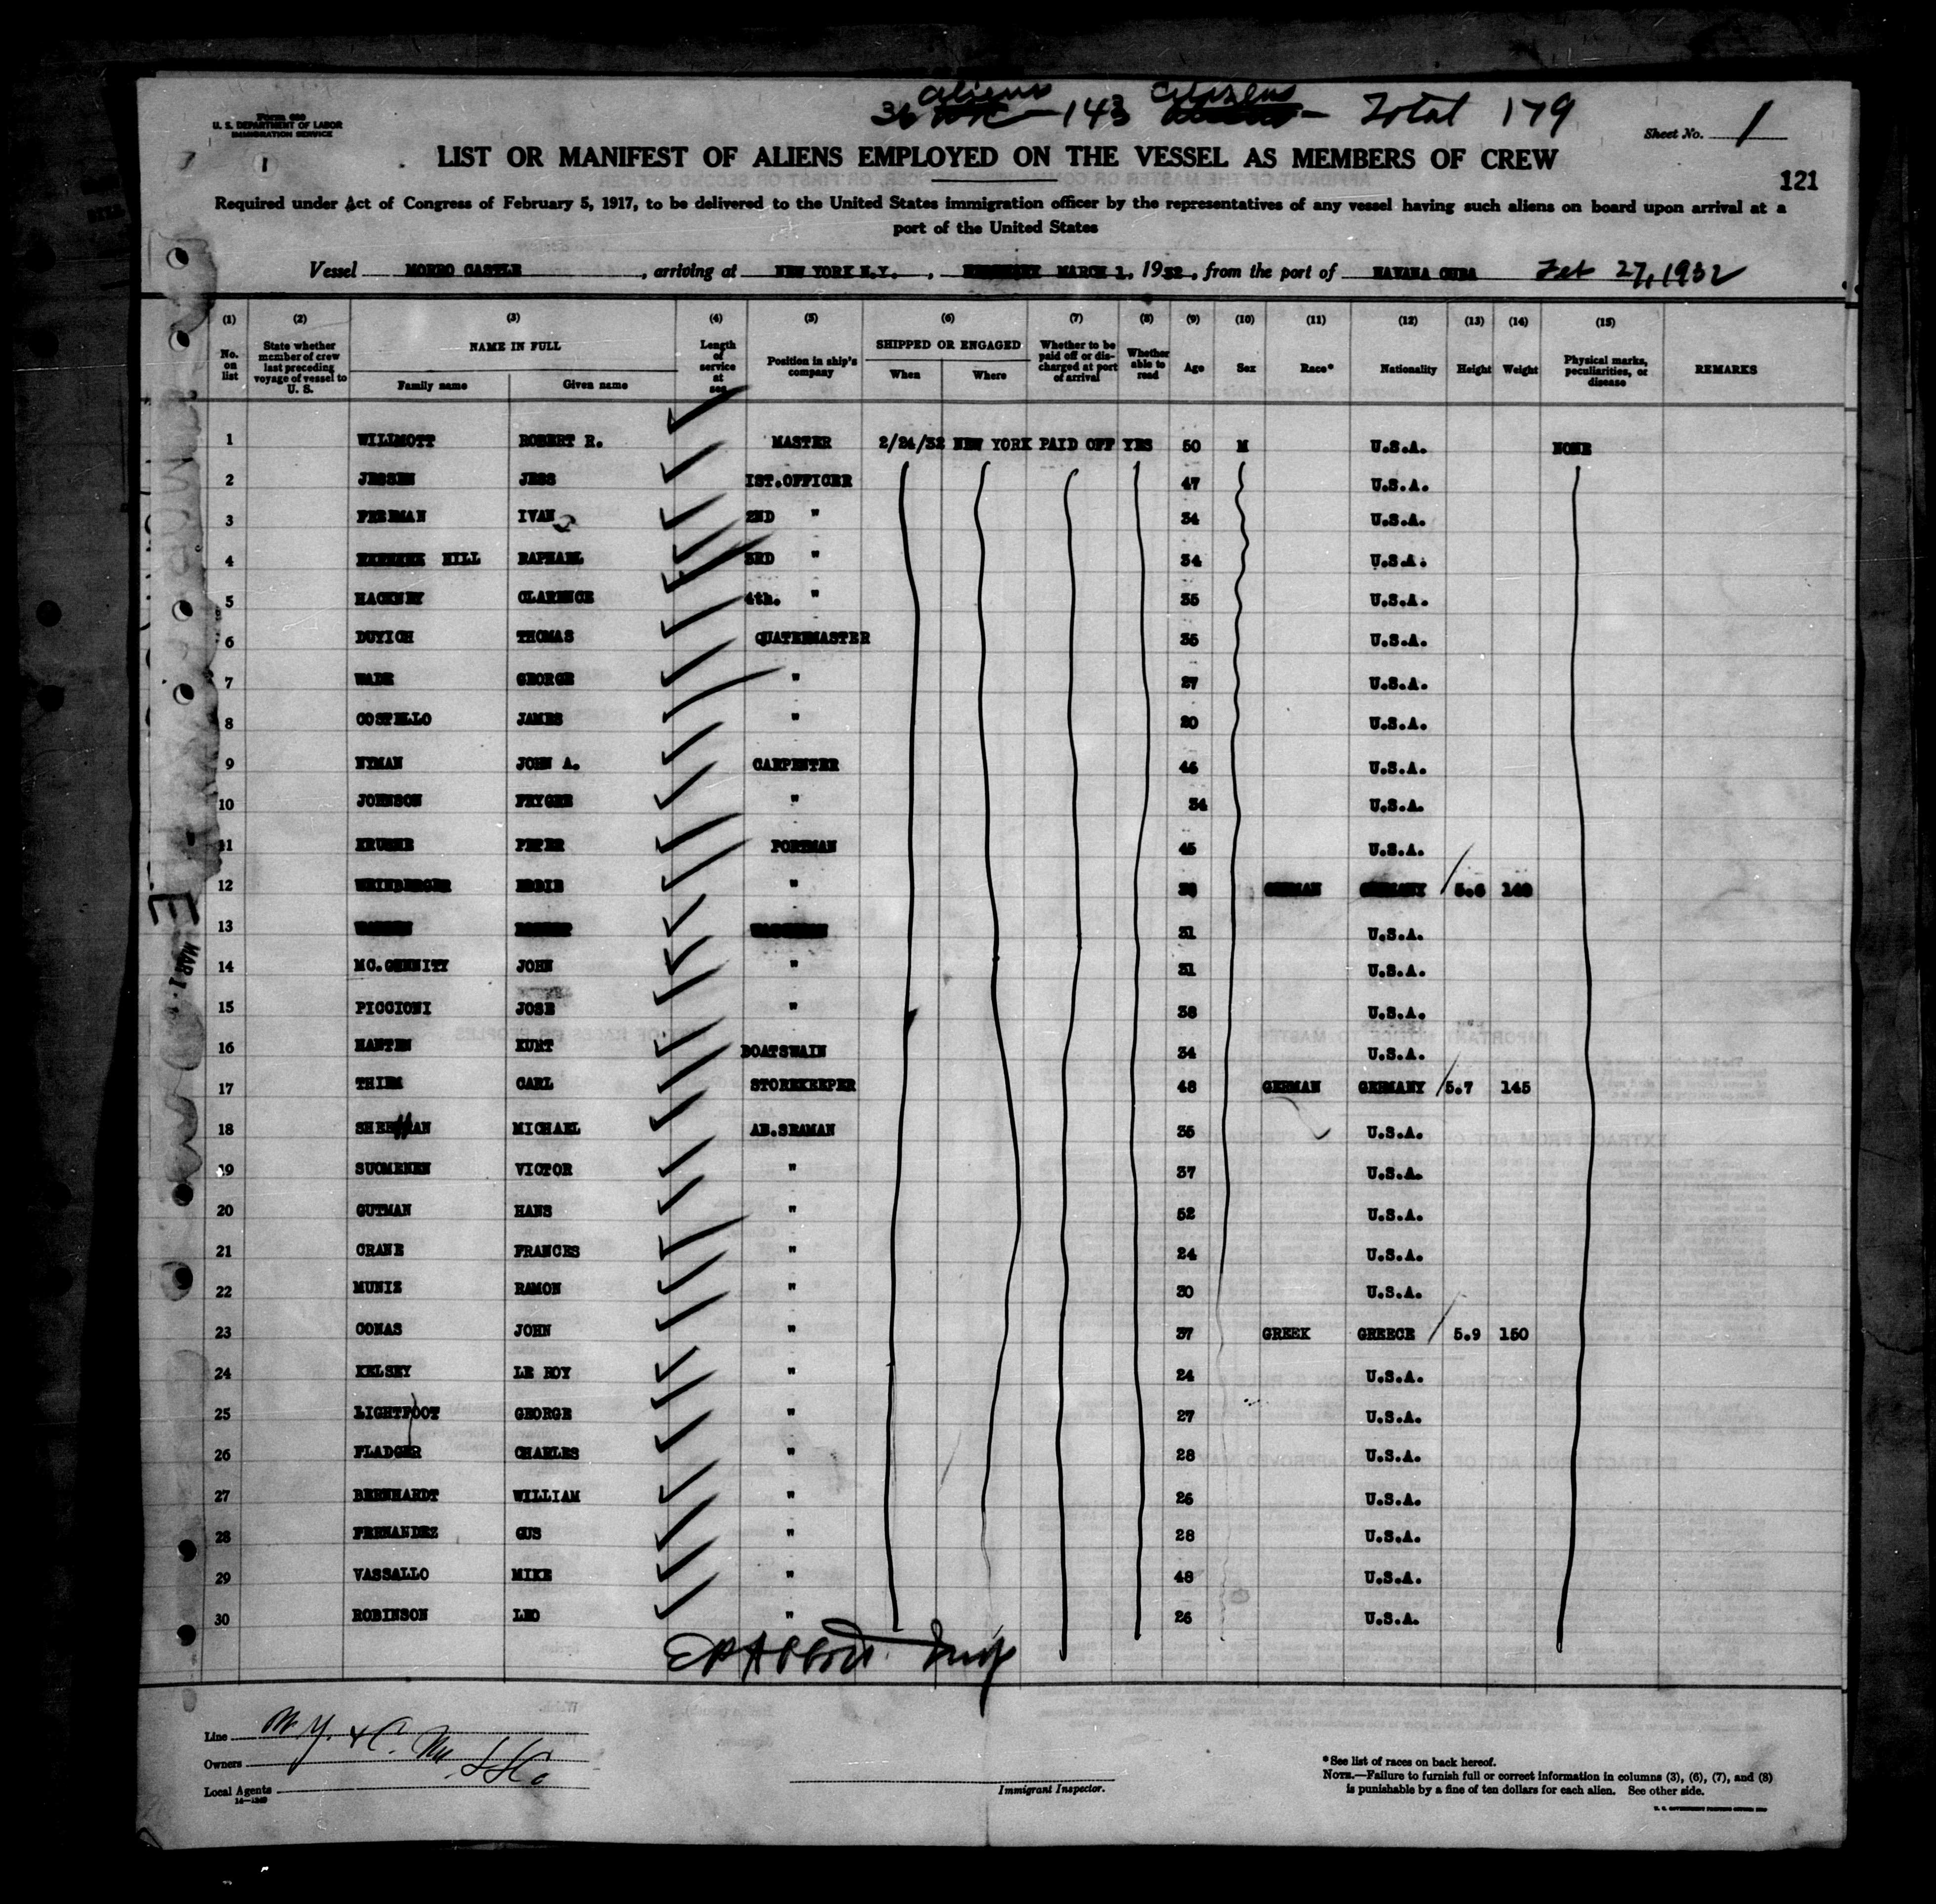 Form 680
U. S. DEPARTMENT OF LABOR
IMMIGRATION SERVICE
1
36 aliens 143 citizens Total 179
Sheet No. 1
LIST OR MANIFEST OF ALIENS EMPLOYED ON THE VESSEL AS MEMBERS OF CREW
121
Required under Act of Congress of February 5, 1917, to be delivered to the United States immigration officer by the representatives of any vessel having such aliens on board upon arrival at a
port of the United States
Vessel MORRO CASTLE, arriving at NEW YORK N.Y., MARCH 1, 1932, from the port of HAVANA CUBA Feb 27, 1932
(1) (2) (3) (4) (5) (6) (7) (8) (9) (10) (11) (12) (13) (14) (15)
No. on list
State whether member of crew last preceding voyage of vessel to U. S.
NAME IN FULL
Family name
Given name
Length of service at sea
Position in ship's company
SHIPPED OR ENGAGED
When
Where
Whether to be paid off or discharged at port of arrival
Whether able to read
Age
Sex
Race*
Nationality
Height
Weight
Physical marks, peculiarities, or disease
REMARKS
1 WILLMOTT ROBERT R. MASTER 2/24/32 NEW YORK PAID OFF YES 50 M U.S.A. NONE
2 JESSEN JESS IST.OFFICER 47 U.S.A.
3 FREEMAN IVAN 2ND " 34 U.S.A.
4 HILL RAPHAEL 3RD " 34 U.S.A.
5 HACKNEY CLARENCE 4th. " 35 U.S.A.
6 DUYICH THOMAS QUATERMASTER 36 U.S.A.
7 WADE GEORGE " 27 U.S.A.
8 COSTELLO JAMES " 20 U.S.A.
9 NYMAN JOHN A. CARPENTER 46 U.S.A.
10 JOHNSON FRYGER " 34 U.S.A.
11 KRUSHE PETER 45 U.S.A.
12 WEINBERGER EDDIE " GERMAN GERMANY 5.6 140
13 31 U.S.A.
14 JOHN " 31 U.S.A.
15 PICCIONI JOSE " 38 U.S.A.
16 HANTEN KURT BOATSWAIN 34 U.S.A.
17 THIEM CARL STOREKEEPER 48 GERMAN GERMANY 5.7 145
18 MICHAEL AB.SEAMAN 35 U.S.A.
19 SUOMENEN VICTOR " 37 U.S.A.
20 GUTMAN HANS " 52 U.S.A.
21 CRANE FRANCES " 24 U.S.A.
22 MUNIZ RAMON " 30 U.S.A.
23 CONAS JOHN " 37 GREEK GREECE 5.9 150
24 KELSEY LE ROY " 24 U.S.A.
25 LIGHTFOOT GEORGE " 27 U.S.A.
26 FLADGER CHARLES " 28 U.S.A.
27 BERNHARDT WILLIAM " 26 U.S.A.
28 FERNANDEZ GUS " 28 U.S.A.
29 VASSALLO MIKE " 48 U.S.A.
30 ROBINSON LEO " 26 U.S.A.
MAR 1
Abbott Insp
Line N.Y. & C. M
Owners S S Co
Local Agents
Immigrant Inspector.
*See list of races on back hereof.
NOTE.—Failure to furnish full or correct information in columns (3), (6), (7), and (8)
is punishable by a fine of ten dollars for each alien. See other side.